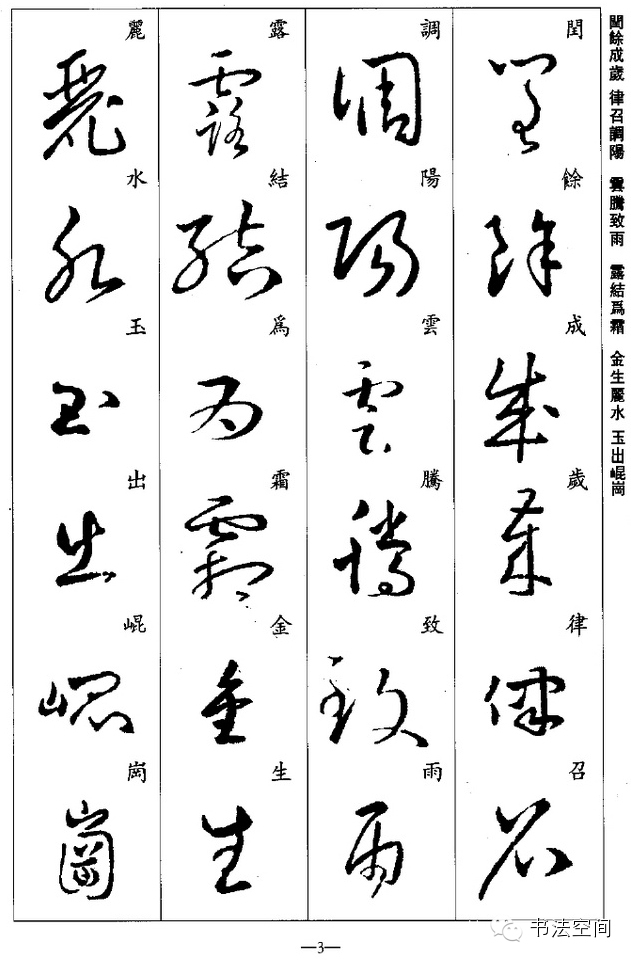 閏餘成歲 律召調陽 雲騰致雨 露結爲霜 金生麗水 玉出崐崗
閏餘成歲律召
調陽雲騰致雨
露結爲霜金生
麗水玉出崐崗
—3—
书法空间